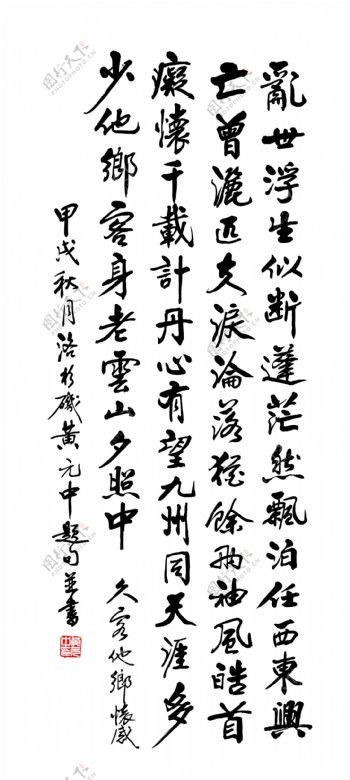 亂世浮生似断蓬茫然飄泊任西東興
亡曾灑匹夫淚淪落猶餘兩袖風皓首
癡懷千載計丹心有望九州同天涯多
少他鄉客身老雲山夕照中
久客他鄉懷感
甲戌秋月洛杉磯黃元中題句並書
图行天下
PHOTOPHOTO.CN